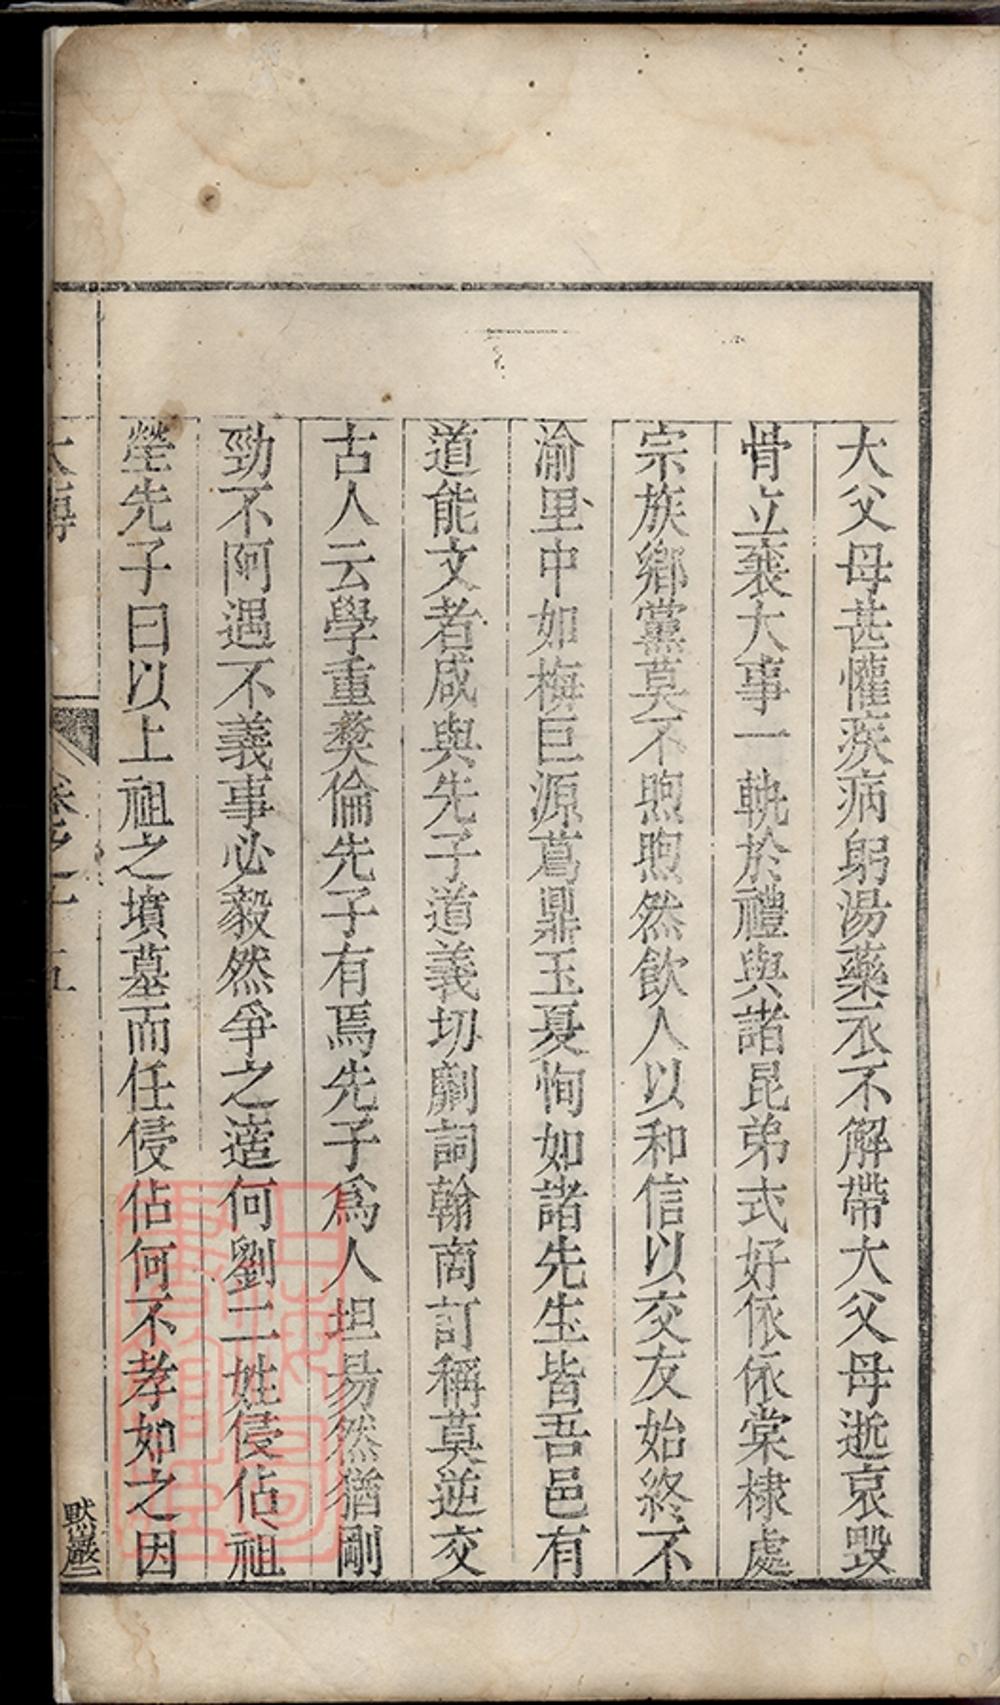 大父母甚懽疾病躬湯藥衣不解帶大父母逝哀毀
骨立襄大事一軌於禮與諸昆弟式好依依棠棣處
宗族鄉黨莫不煦煦然飲人以和信以交友始終不
渝里中如梅巨源蔦鼎玉夏恂如諸先生皆吾邑有
道能文者咸與先子道義切劘詞翰商訂稱莫逆交
古人云學重彜倫先子有焉先子爲人坦易然猶剛
勁不阿遇不義事必毅然爭之適何劉二姓侵佔祖
塋先子曰以上祖之墳墓而任侵佔何不孝如之因
大傳 卷之十五 默巖